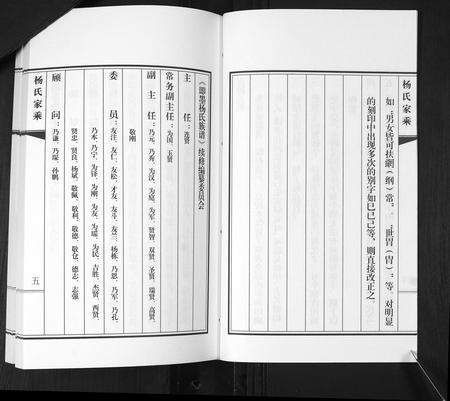 杨氏家乘
如：男女皆可扶(纲)常。一世胄(胄)；等。对明显
的刻印中出现多次的别字如巳已己等，则直接改正之。
《即墨杨氏族谱》续修编纂委员会
主任：连贤
常务副主任：为国、玉贤
副主任：乃元、乃秀、为汉、为庭、为军、贤智、双贤、圣贤、瑞贤、高贤、
敬刚
委员：友注、友仁、友松、才友、友斗、友兰、杨栋、乃恩、乃军、乃孔
乃本、乃宁、为铎、为刚、为友、为瑞、为民、吉胜、杰贤、西贤、
贤忠、贤良、杨斌、敬佩、敬利、敬德、敬仓、德志、志强
顾问：乃谦、乃瑞、孙鹏
杨氏家乘
五